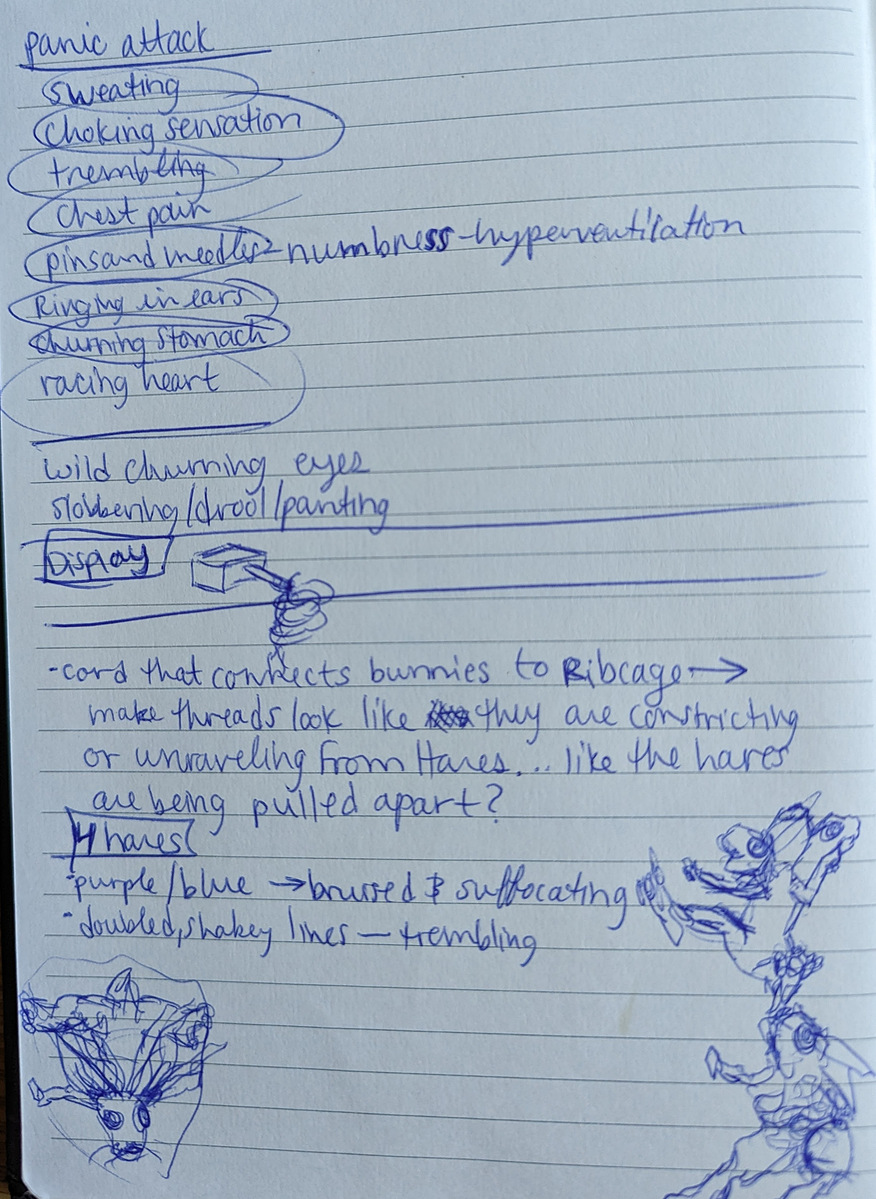 panic attack
sweating
choking sensation
trembling
chest pain
pins and needles - numbness - hyperventilation
Ringing in ears
churning stomach
racing heart
wild churning eyes
slobbering/drool/panting
Display
- cord that connects bunnies to Ribcage →
make threads look like they are constricting
or unraveling from Hares... like the hares
are being pulled apart?
4 hares
· purple/blue → brused & suffocating
· doubled, shakey lines — trembling